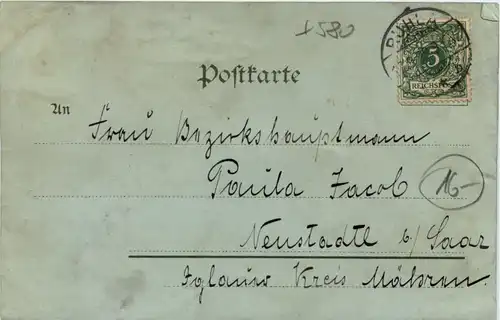 +580
RUHLA
5
REICHSPOST
Postkarte
An
Frau Bezirkshauptmann
Paula Jacob
16-
Neustadtl b/ Saar
Iglauer Kreis Mähren.